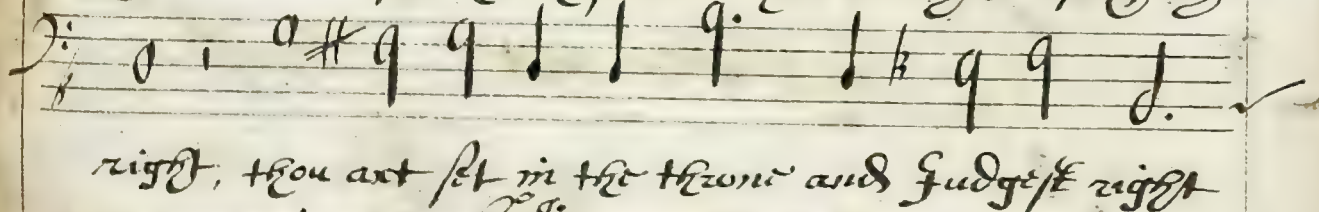 right, thou art set in the throne and Judgest right